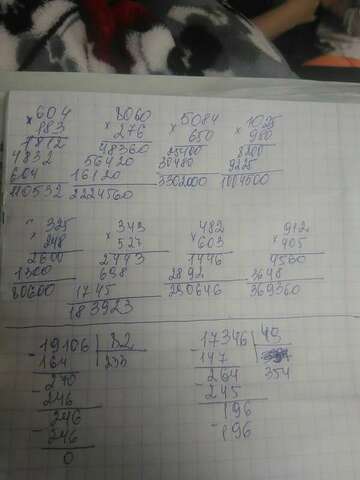 604 8060 5080 1025
× 183 × 276 × 650 × 980
1812 48360 25400 8200
4832 56420 30480 9225
604 16120 3302000 1004500
110532 2224560
325 349 482 912
× 248 × 527 × 603 × 405
2600 2443 1446 4560
1300 698 2892 3648
80600 1745 290646 369360
183923
- 19106 | 82 - 17346 | 49
164 | 233 147
- 270 - 264 354
246 245
- 246 - 196
246 196
0